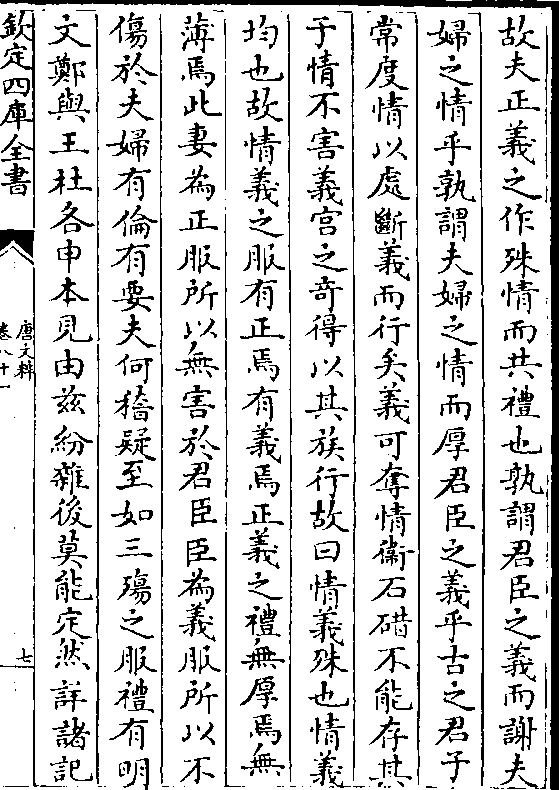 故夫正義之作殊情而共禮也孰謂君臣之義而謝夫
婦之情乎孰謂夫婦之情而厚君臣之義乎古之君子
常度情以處斷義而行矣義可奪情衞石碏不能存其
子情不害義宫之奇得以其族行故曰情義殊也情義
均也故情義之服有正焉有義焉正義之禮無厚焉無
薄焉此妻為正服所以無害於君臣臣為義服所以不
傷於夫婦有倫有要夫何㮣疑至如三殤之服禮有明
文鄭與王杜各申本見由兹紛雜後莫能定然詳諸記
欽定四庫全書
唐文粹
卷八十一
七